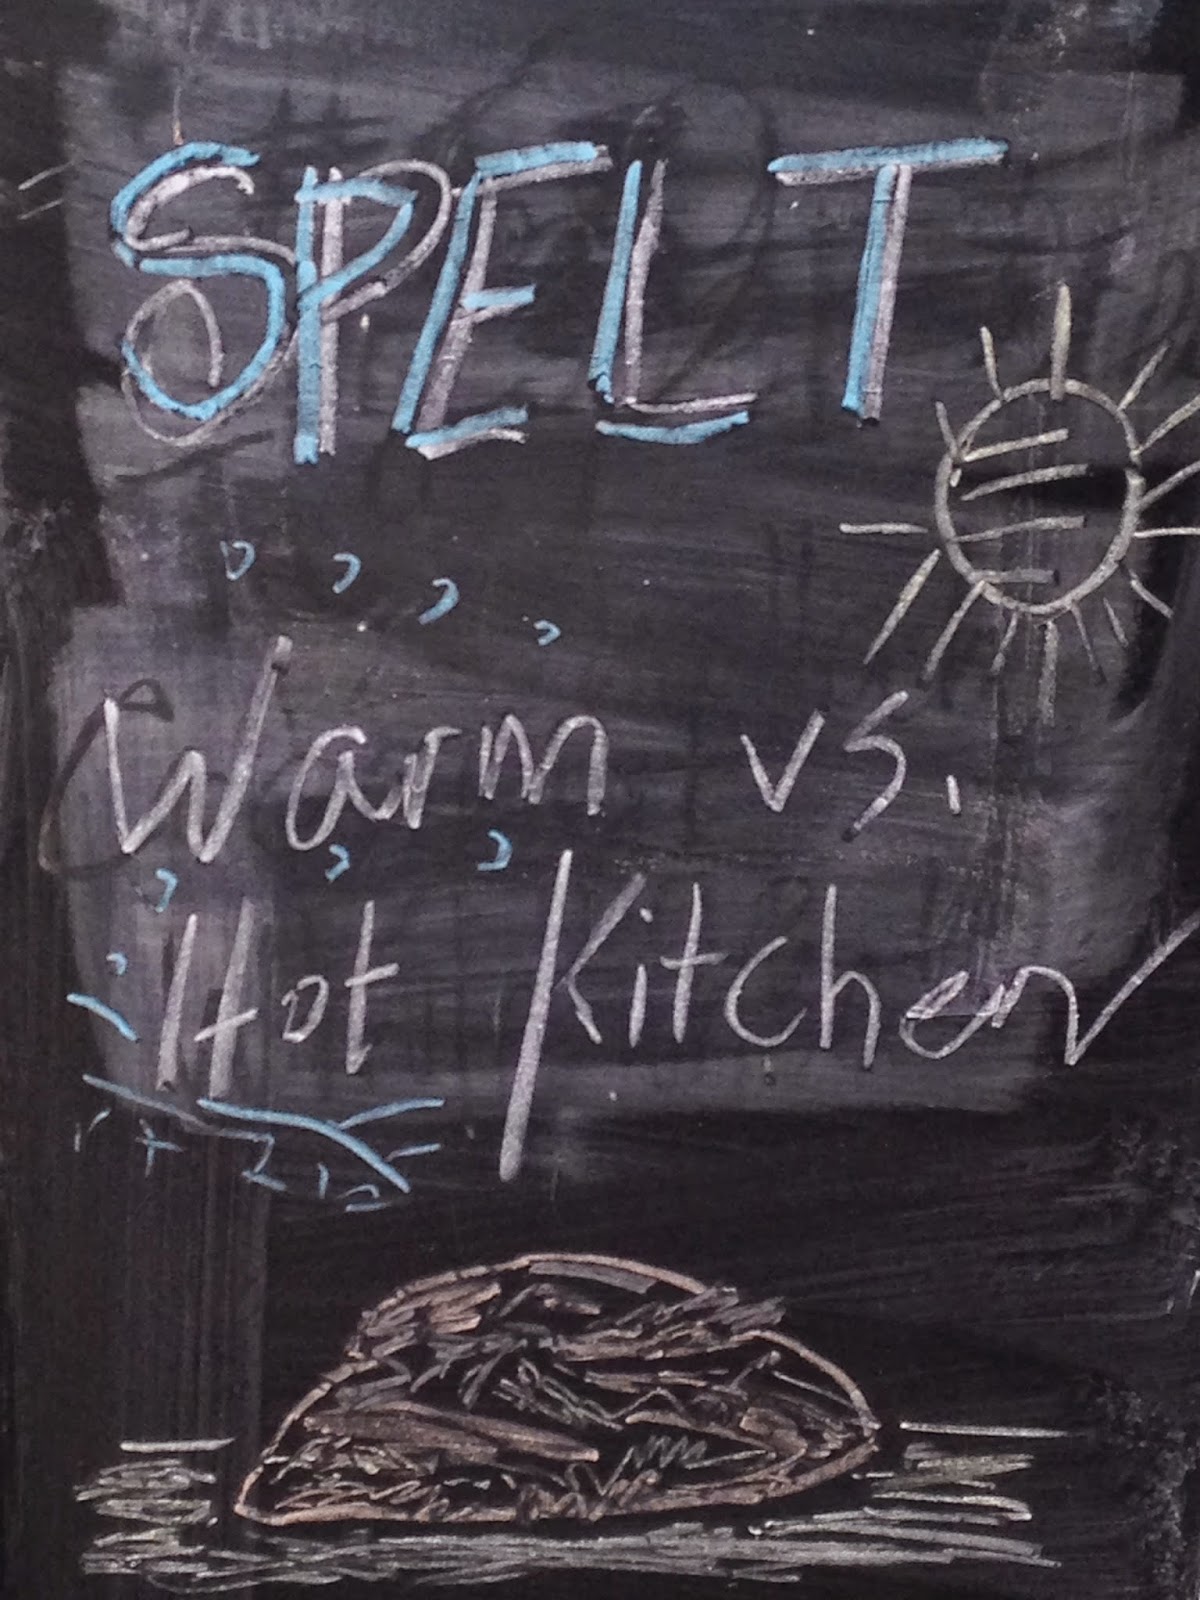 SPELT
Warm vs.
Hot Kitchen